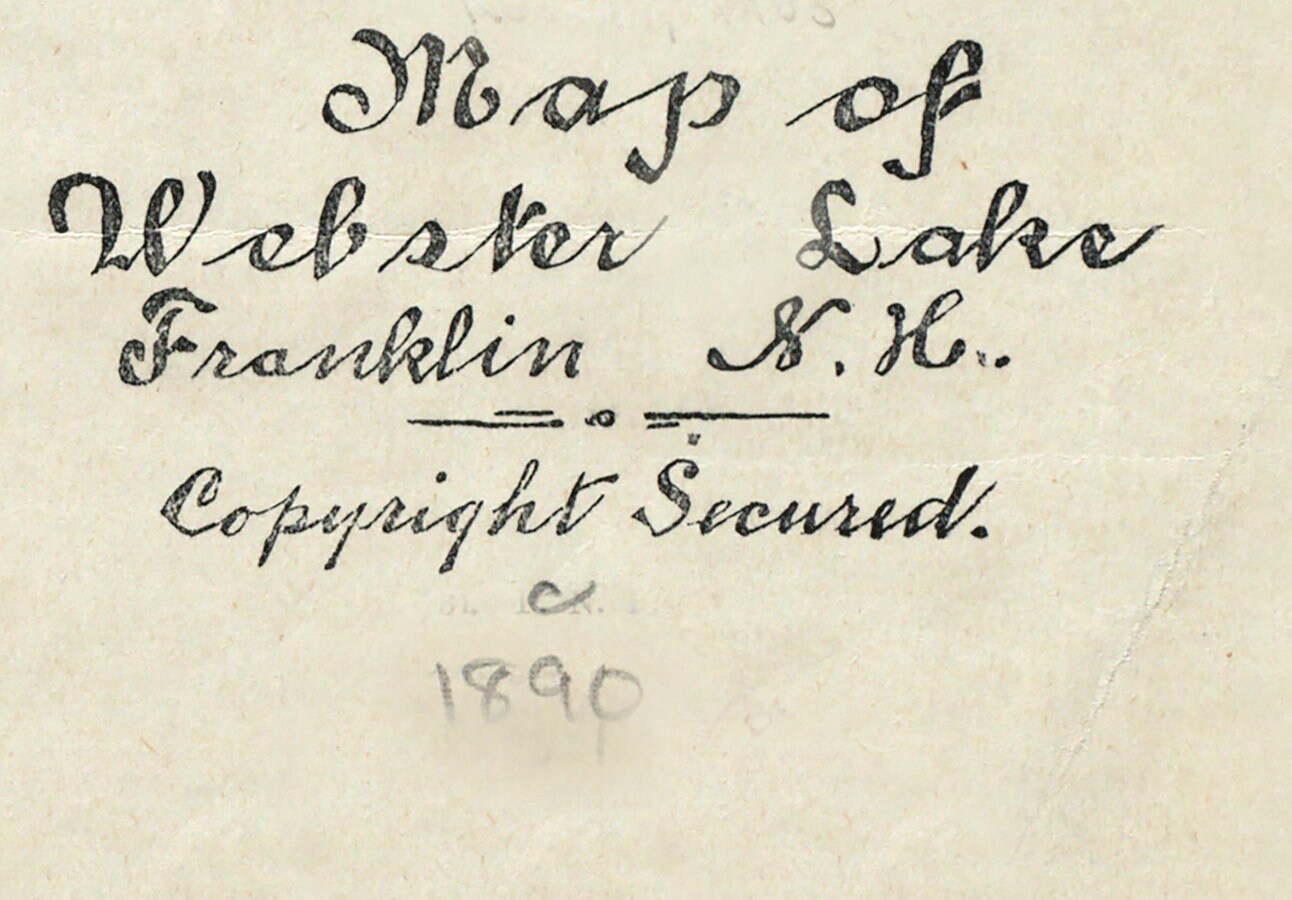 Map of
Webster Lake
Franklin N. H.
Copyright Secured.
c
1890